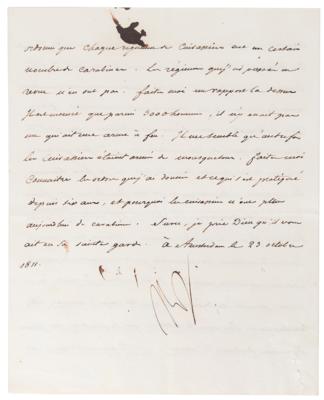 ordonné que chaque régiment de Cuirassiers eut un certain
nombre de carabines. Le régiment que j'ai passé en
revue n'en ont pas. faites moi un rapport là dessus
Il est ennuié que parmi 3000 hommes, il n'y en ait pas
un qui ait une arme à feu. Il me semble qu'autrefois
les cuirassiers étaient armés de mousquetons. faites moi
connaître les ordres que j'ai donnés et ce qui s'est pratiqué
depuis six ans, et pourquoi les cuirassiers n'ont plus
aujourd'hui de carabines. Sur ce, je prie Dieu qu'il vous
ait en sa sainte garde. à Amsterdam le 23 octobre
1811.